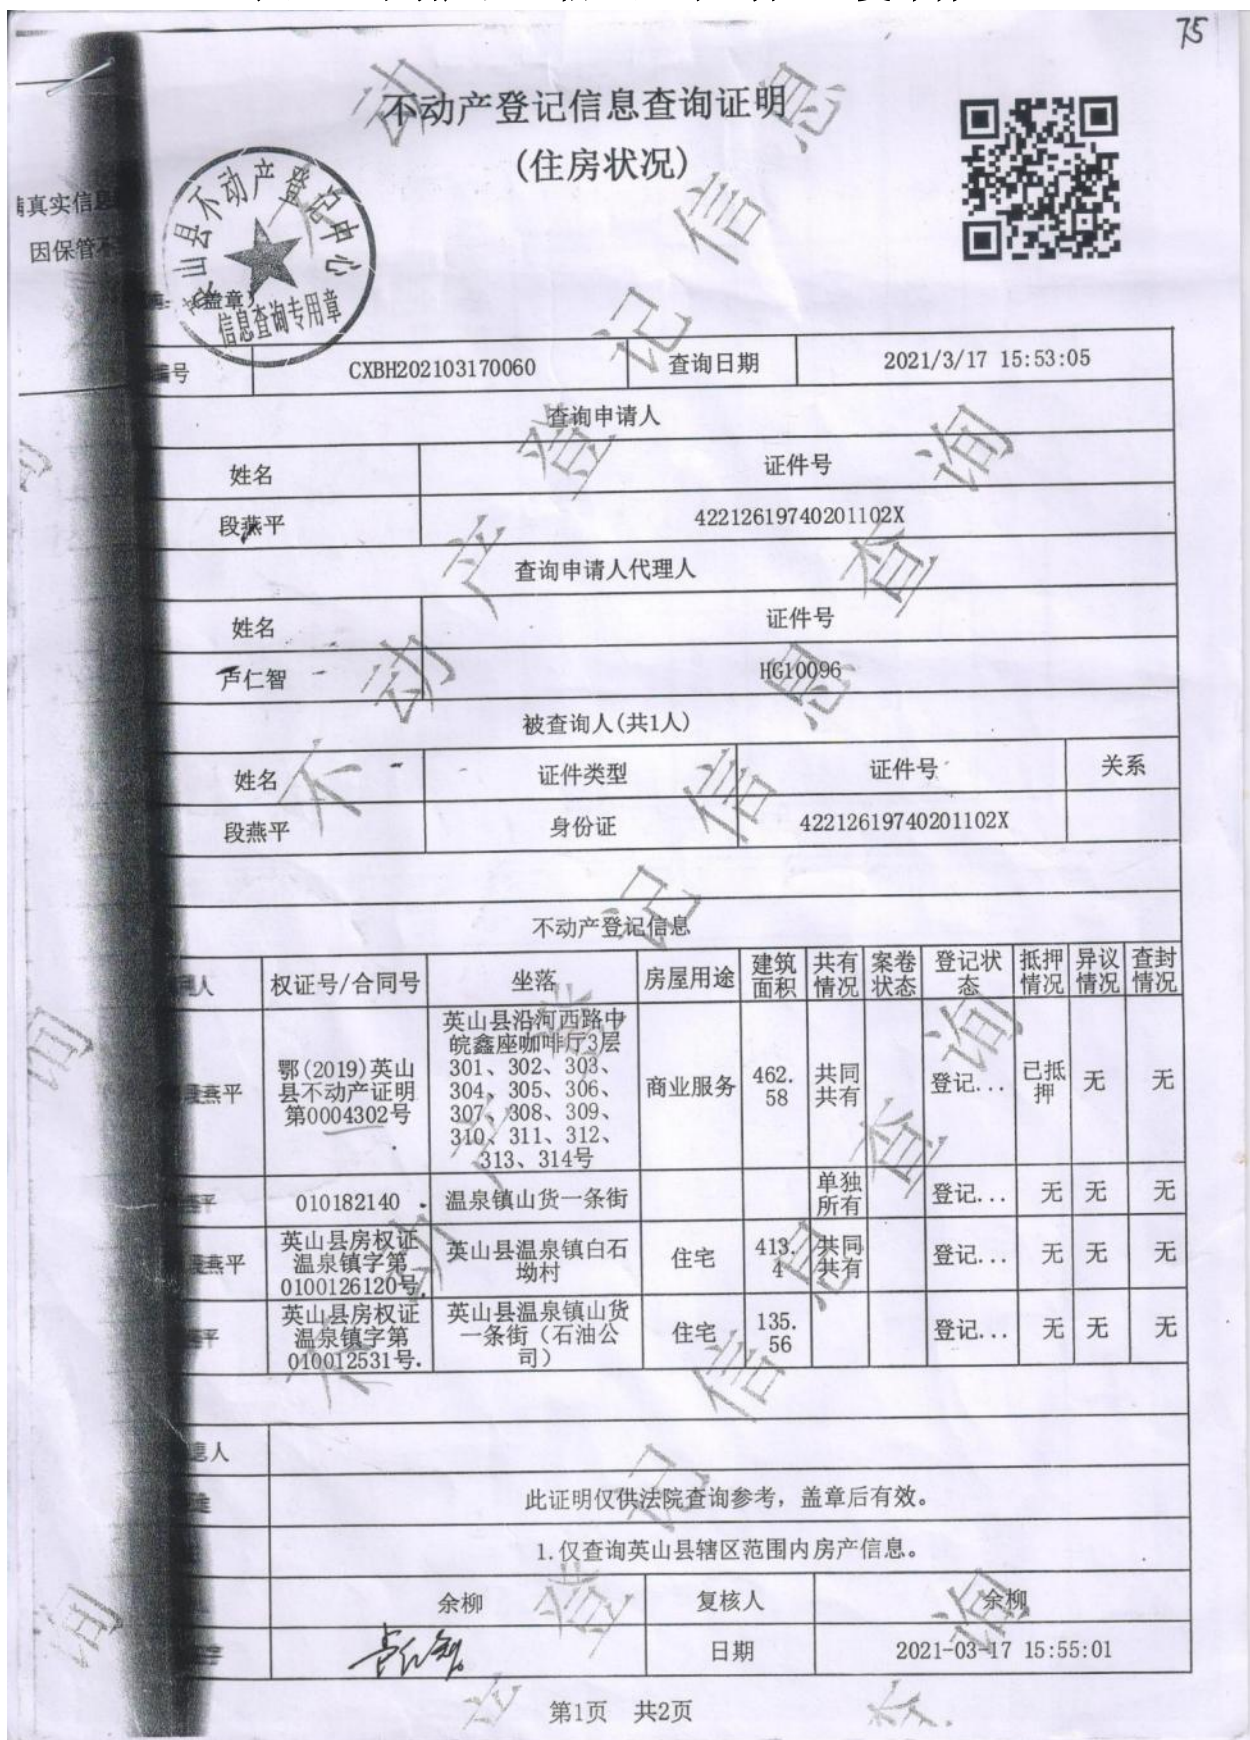 75
不动产登记信息查询证明
(住房状况)
山县不动产登记中心
信息查询专用章
真实信息
因保管不
(盖章)
编号 CXBH202103170060 查询日期 2021/3/17 15:53:05
查询申请人
姓名 证件号
段燕平 42212619740201102X
查询申请人代理人
姓名 证件号
卢仁智 HG10096
被查询人(共1人)
姓名 证件类型 证件号 关系
段燕平 身份证 42212619740201102X
不动产登记信息
人 权证号/合同号 坐落 房屋用途 建筑面积 共有情况 案卷状态 登记状态 抵押情况 异议情况 查封情况
燕平 鄂(2019)英山县不动产证明第0004302号 英山县沿河西路中皖鑫座咖啡厅3层301、302、303、304、305、306、307、308、309、310、311、312、313、314号 商业服务 462.58 共同共有 登记... 已抵押 无 无
燕平 010182140 温泉镇山货一条街 单独所有 登记... 无 无 无
燕平 英山县房权证温泉镇字第0100126120号 英山县温泉镇白石坳村 住宅 413.4 共同共有 登记... 无 无 无
平 英山县房权证温泉镇字第010012531号 英山县温泉镇山货一条街（石油公司） 住宅 135.56 登记... 无 无 无
人
此证明仅供法院查询参考，盖章后有效。
1.仅查询英山县辖区范围内房产信息。
余柳 复核人 余柳
日期 2021-03-17 15:55:01
第1页 共2页
不动产登记信息查询